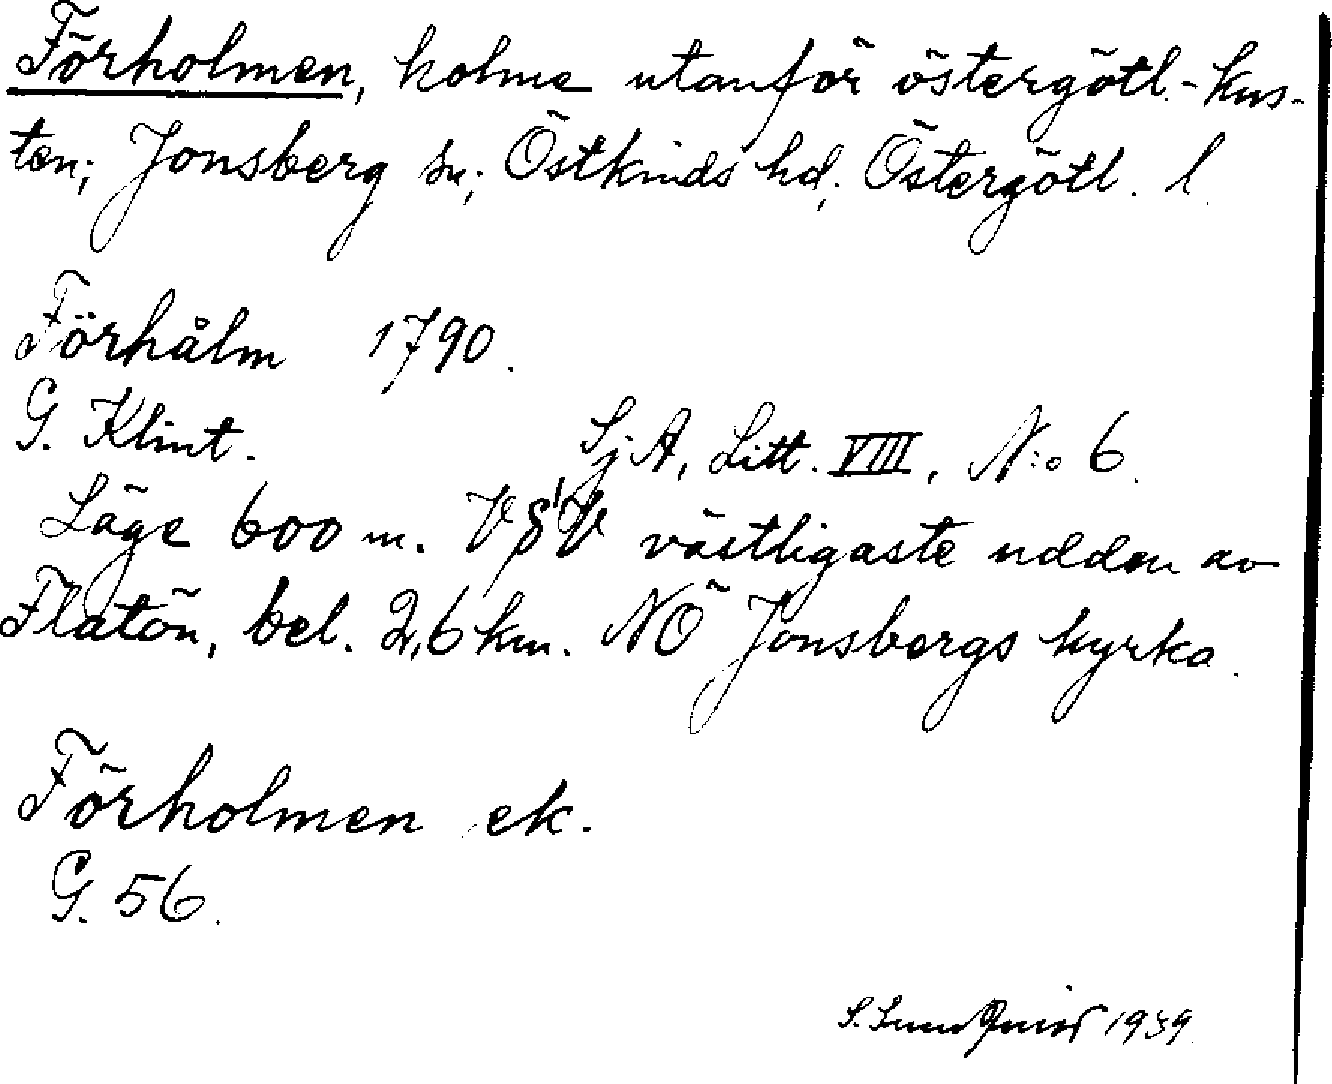 Förholmen, holme utanför östergötl.-kus-
ten; Jonsberg sn; Östkinds hd; Östergötl. l.
Förhålm 1790.
G. Klint. SjA, Litt. VIII, N:o 6.
Läge 600 m. V S V västligaste udden av
Flatön, bel. 2,6 km. NÖ Jonsbergs kyrka.
Förholmen ek.
G. 56.
S. Sundquist 1939